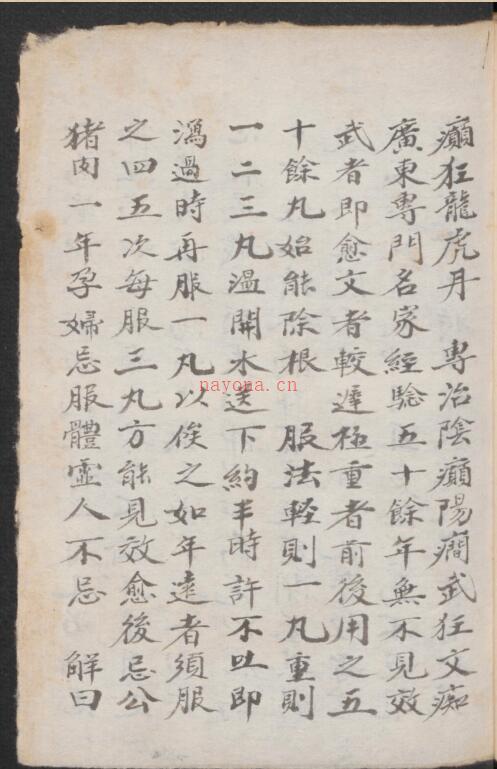 癲狂龍虎丹　專治陰癲陽癎武狂文痴
廣東專門名家經驗五十餘年無不見效
武者即愈文者較遲極重者前後用之五
十餘丸始能除根　服法輕則一丸重則
一二三丸温開水送下約半時許不吐即
瀉過時再服一丸以俟之如年遠者須服
之四五次每服三丸方能見效愈後忌公
猪肉一年孕婦忌服體虛人不忌　解曰
nayona.cn